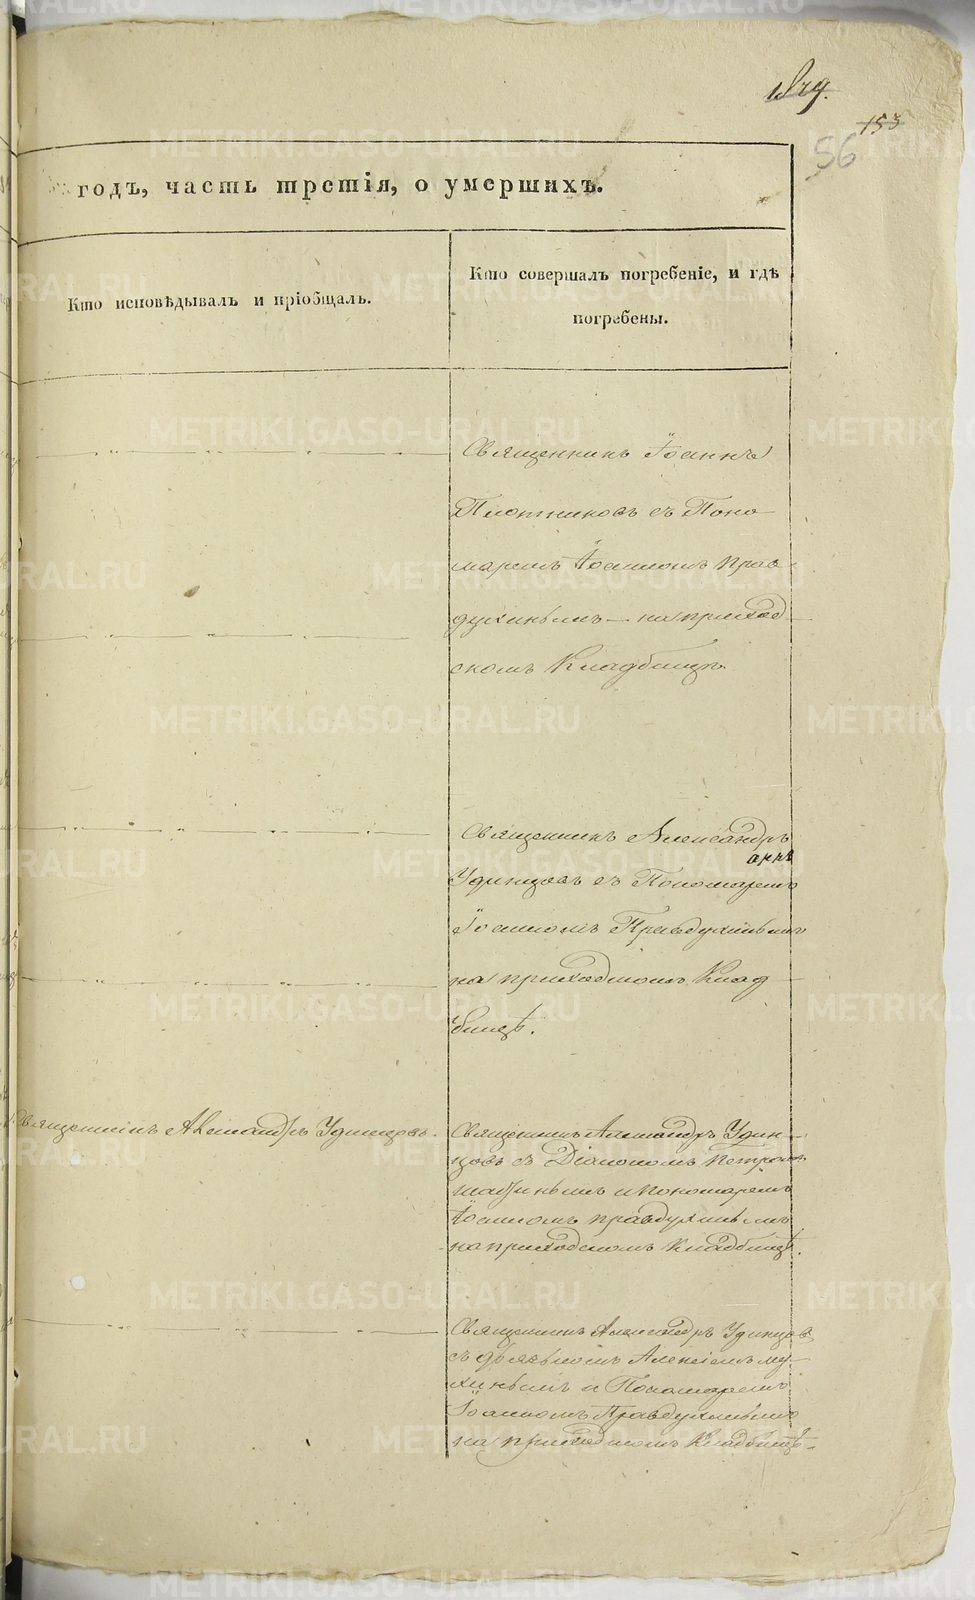 153
56
годъ, часть третія, о умершихъ.
Кто исповѣдывалъ и пріобщалъ.
Кто совершалъ погребеніе, и гдѣ
погребены.
Священникъ Іоаннъ
Плотниковъ съ Поно
маремъ Іоанномъ Прав
духинымъ — на приход
скомъ Кладбищѣ.
Священникъ Александръ
Удинцовъ съ Пономаремъ
Іоанномъ Правдухинымъ
на приходскомъ Клад
бищѣ.
Священникъ Александръ Удинцовъ.
Священникъ Александръ Удин
цовъ съ Діакономъ Петромъ
и Пономаремъ
Іоанномъ Правдухинымъ
на приходскомъ Кладбищѣ.
Священникъ Александръ Удинцовъ
съ дьячкомъ Алексіемъ Му
хинымъ и Пономаремъ
Іоанномъ Правдухинымъ
на приходскомъ Кладбищѣ.
METRIKI.GASO-URAL.RU